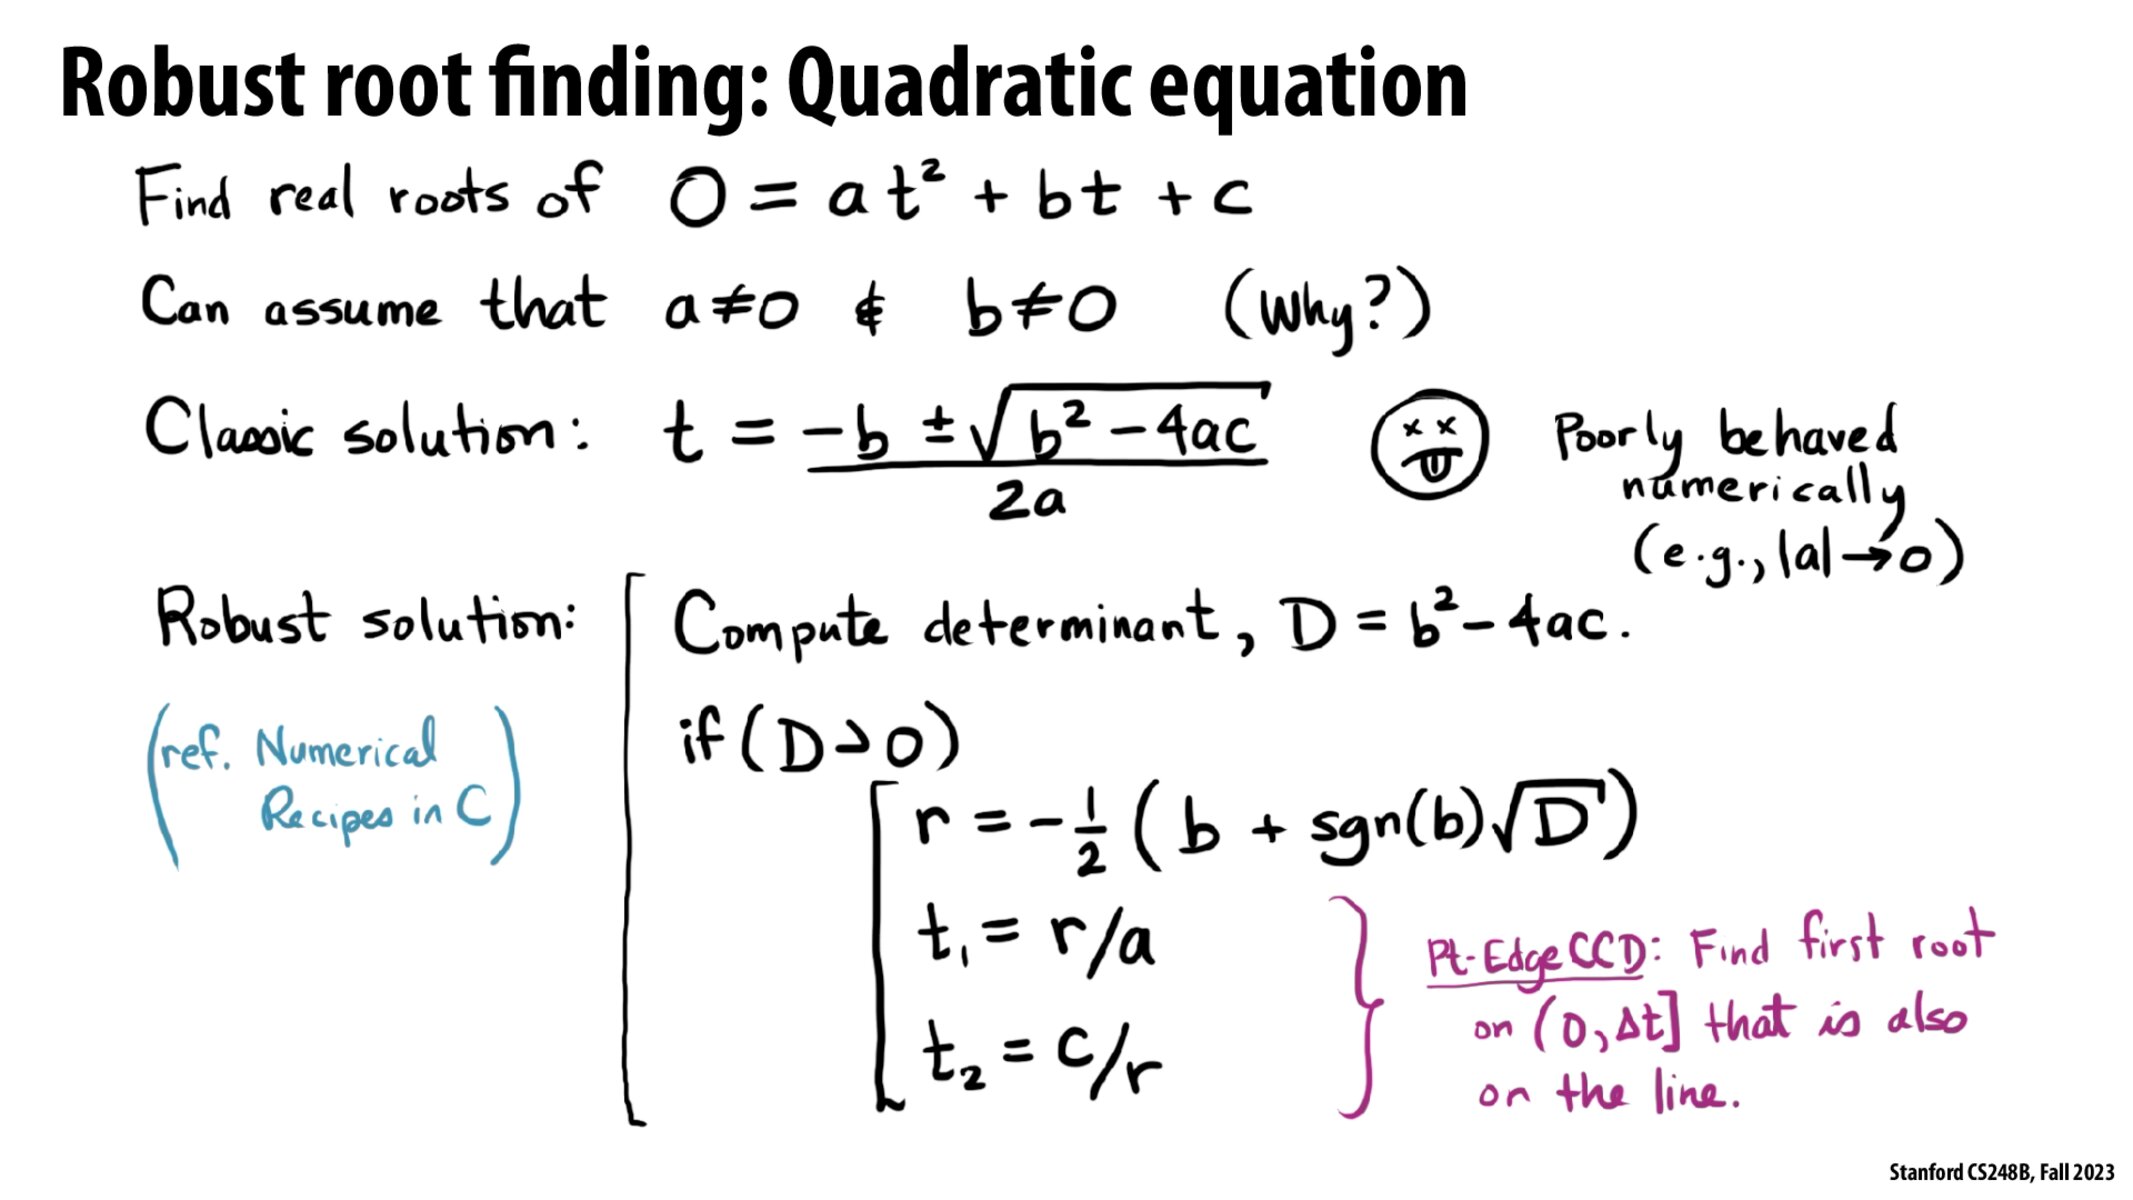 Robust root finding: Quadratic equation
Find real roots of 0 = at² + bt + c
Can assume that a≠0 & b≠0 (Why?)
Classic solution: t = (-b ± √(b² - 4ac)) / 2a
Poorly behaved
numerically
(e.g., |a|→0)
Robust solution:
(ref. Numerical
Recipes in C)
Compute determinant, D = b² - 4ac.
if (D > 0)
r = -½ (b + sgn(b)√D)
t₁ = r/a
t₂ = c/r
Pt-Edge CCD: Find first root
on (0, Δt] that is also
on the line.
Stanford CS248B, Fall 2023